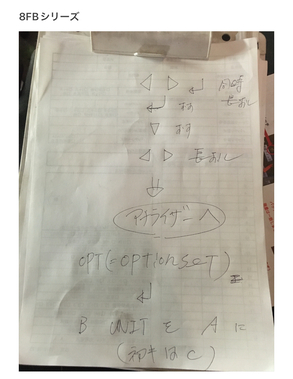 8FBシリーズ
◁ ▷ ↵ 同時長おし
↵ おす
▽ おす
◁ ▷ 長おし
⇓
アナライザーへ
OPT(=OPTION SET)
↵
B UNITを Aに
(初キはC)